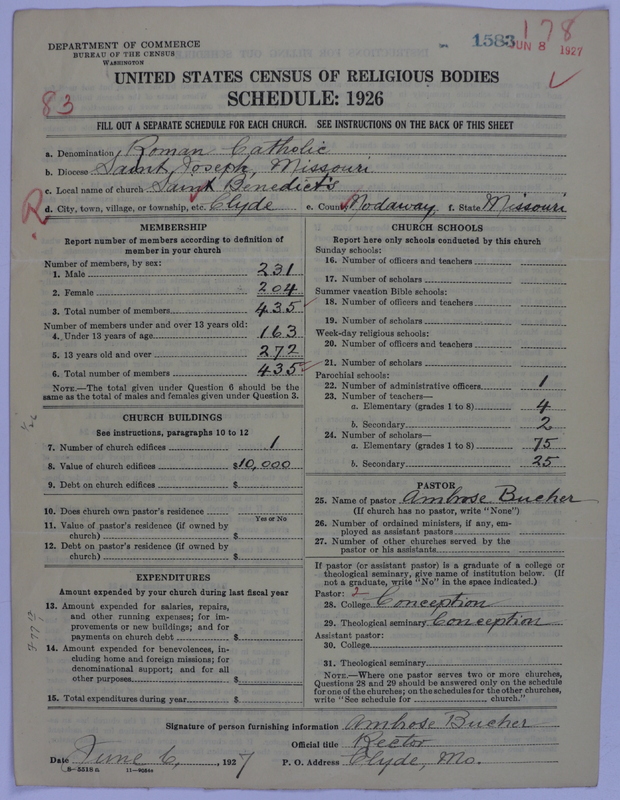 DEPARTMENT OF COMMERCE
BUREAU OF THE CENSUS
WASHINGTON
1583
178
JUN 8 1927
UNITED STATES CENSUS OF RELIGIOUS BODIES
SCHEDULE: 1926
83
FILL OUT A SEPARATE SCHEDULE FOR EACH CHURCH. SEE INSTRUCTIONS ON THE BACK OF THIS SHEET
a. Denomination Roman Catholic
b. Diocese Saint Joseph, Missouri
c. Local name of church Saint Benedict's
R
d. City, town, village, or township, etc. Clyde e. County Nodaway, f. State Missouri
MEMBERSHIP
Report number of members according to definition of
member in your church
Number of members, by sex:
1. Male 231
2. Female 204
3. Total number of members 435
Number of members under and over 13 years old:
4. Under 13 years of age 163
5. 13 years old and over 272
6. Total number of members 435
NOTE.—The total given under Question 6 should be the
same as the total of males and females given under Question 3.
CHURCH BUILDINGS
See instructions, paragraphs 10 to 12
7. Number of church edifices 1
8. Value of church edifices $10,000
9. Debt on church edifices $
10. Does church own pastor's residence
Yes or No
11. Value of pastor's residence (if owned by
church) $
12. Debt on pastor's residence (if owned by
church) $
EXPENDITURES
Amount expended by your church during last fiscal year
13. Amount expended for salaries, repairs,
and other running expenses; for im-
provements or new buildings; and for
payments on church debt $
14. Amount expended for benevolences, in-
cluding home and foreign missions; for
denominational support; and for all
other purposes $
15. Total expenditures during year $
CHURCH SCHOOLS
Report here only schools conducted by this church
Sunday schools:
16. Number of officers and teachers
17. Number of scholars
Summer vacation Bible schools:
18. Number of officers and teachers
19. Number of scholars
Week-day religious schools:
20. Number of officers and teachers
21. Number of scholars
Parochial schools:
22. Number of administrative officers 1
23. Number of teachers—
a. Elementary (grades 1 to 8) 4
b. Secondary 2
24. Number of scholars—
a. Elementary (grades 1 to 8) 75
b. Secondary 25
PASTOR
25. Name of pastor Ambrose Bucher
(If church has no pastor, write "None")
26. Number of ordained ministers, if any, em-
ployed as assistant pastors
27. Number of other churches served by the
pastor or his assistants
If pastor (or assistant pastor) is a graduate of a college or
theological seminary, give name of institution below. (If
not a graduate, write "No" in the space indicated.)
Pastor: 2
28. College Conception
29. Theological seminary Conception
Assistant pastor:
30. College
31. Theological seminary
NOTE.—Where one pastor serves two or more churches,
Questions 28 and 29 should be answered only on the schedule
for one of the churches; on the schedules for the other churches,
write "See schedule for church."
Signature of person furnishing information Ambrose Bucher
Official title Rector
Date June 6, 1927 P. O. Address Clyde, Mo.
8—5518 a